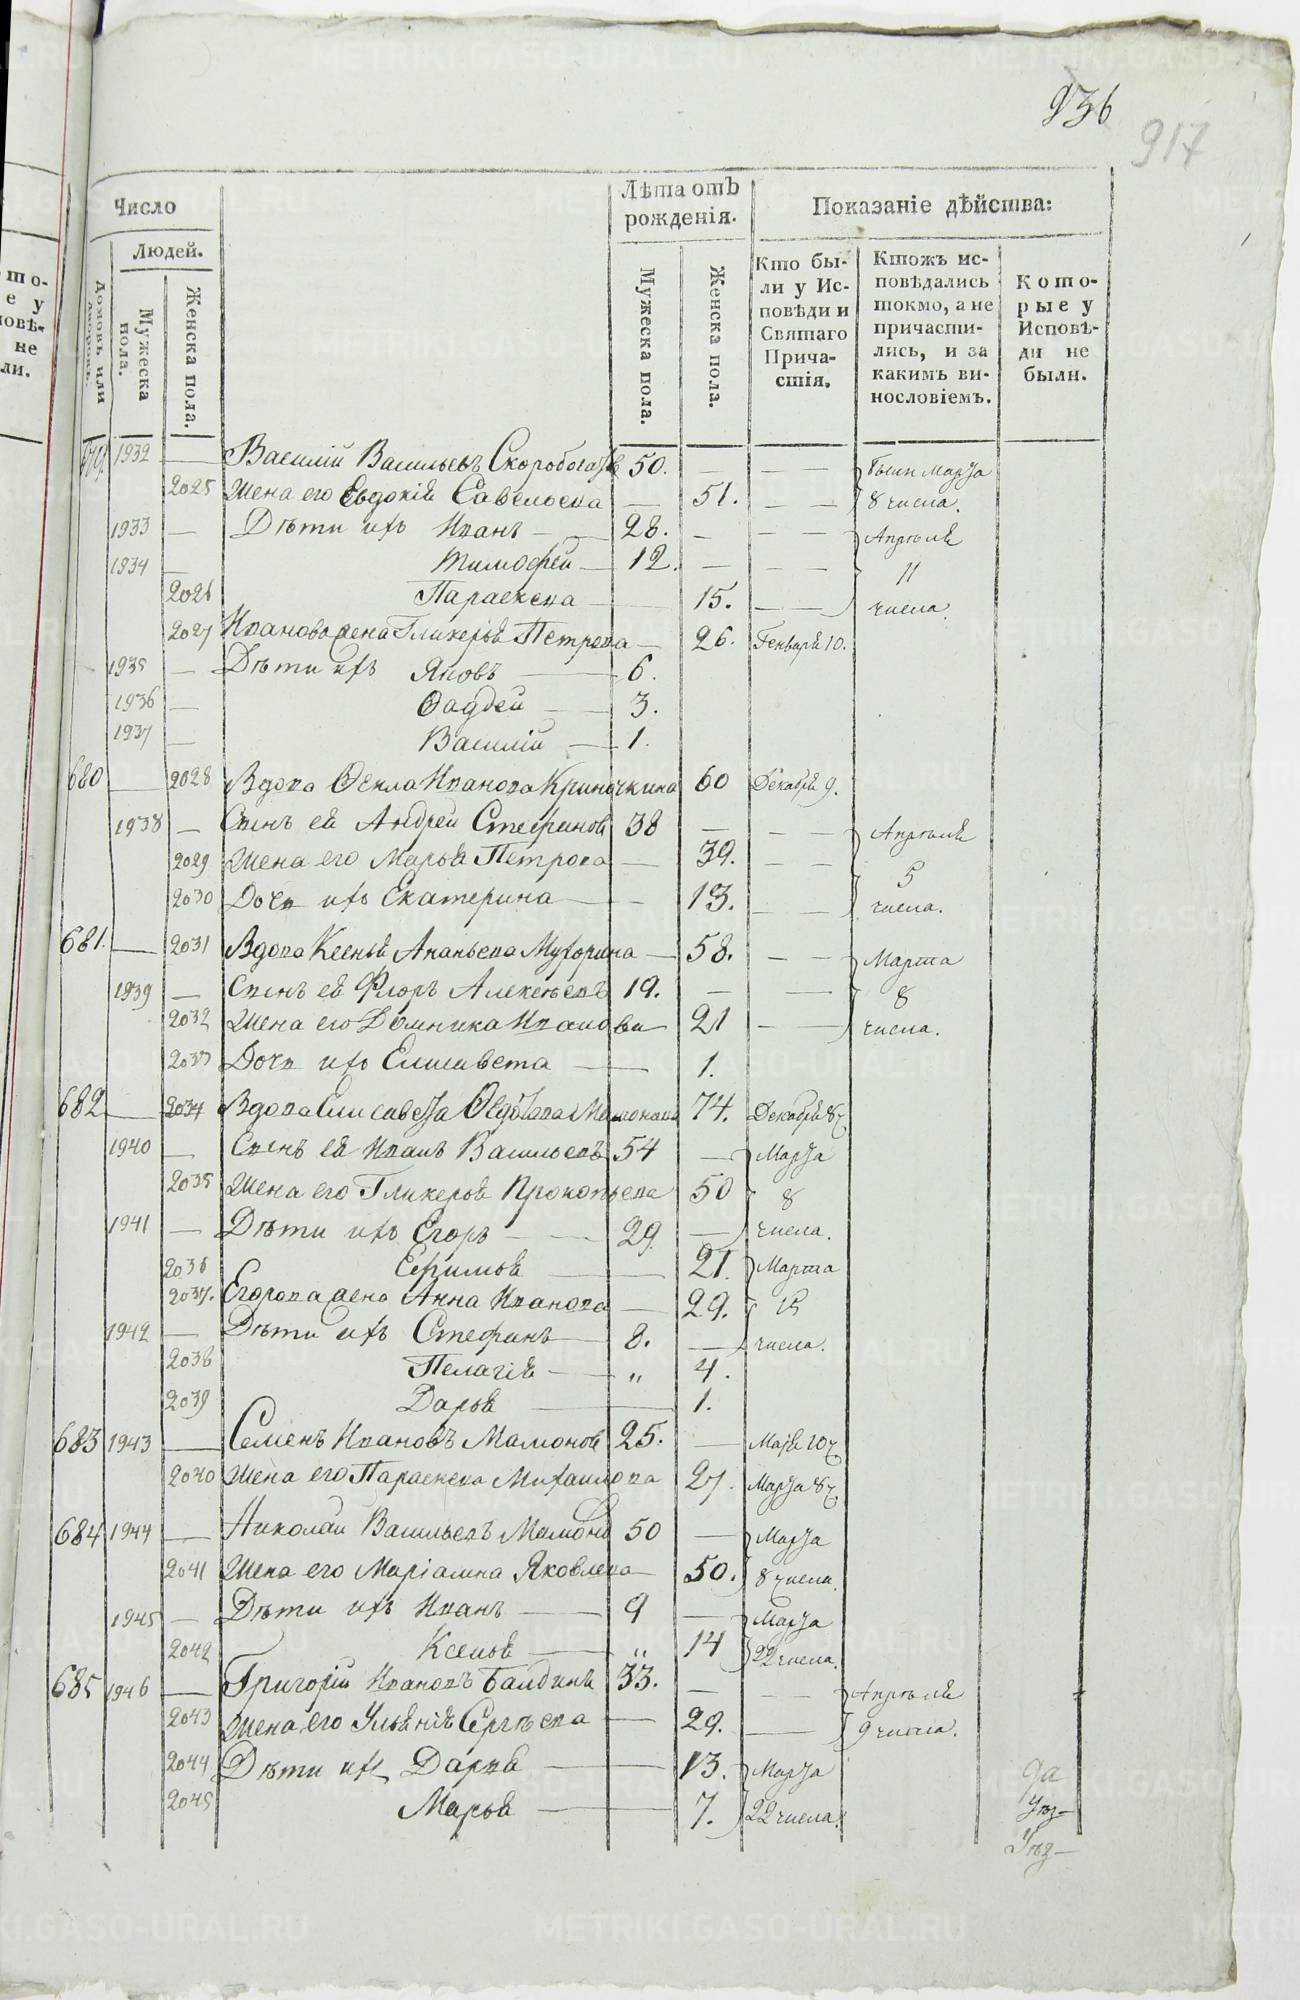 936
917
Число
Людей.
Домовъ или дворовъ.
Мужеска пола.
Женска пола.
Лѣта отъ рожденія.
Мужеска пола.
Женска пола.
Показаніе дѣйства:
Кто бы-
ли у Ис-
повѣди и
Святаго
Прича-
стія.
Ктожъ ис-
повѣдались
токмо, а не
причасти-
лись, и за
какимъ ви-
нословіемъ.
Кото-
рые у
Исповѣ-
ди не
были.
1932 — Василій Васильевъ Скоробогатов 50. — — — были Марта
2025 Жена его Евдокія Савельева — 51. — — 8 числа.
1933 — Дѣти ихъ Иванъ — 28. — — — Апрѣля
1934 — Тимофей — 12. — — — 11
2026 Параскева — 15. — — числа
2027 Иванова жена Гликерія Петрова — 26. Генваря 10.
1935 — Дѣти ихъ Яковъ — 6.
1936 — Фадей — 3.
1937 — Василій — 1.
680 — 2028 Вдова Фекла Иванова Криночкина 60 Декабря 9.
1938 — Сынъ ея Андрей Стефановъ 38 — — — Апрѣля
2029 Жена его Марья Петрова — 39. — — 5
2030 Дочь ихъ Екатерина — 13. — — числа.
681. — 2031 Вдова Ксенья Ананьева Мухорина — 58. — — Марта
1939 — Сынъ ея Флоръ Алексѣевъ 19. — — 8
2032 Жена его Домника Иванова — 21 — — числа.
2033 Дочь ихъ Елисавета — 1.
682 — 2034 Вдова Елисавета Федотова Мамонова 74. Декабря 8 ч
1940 — Сынъ ея Иванъ Васильевъ 54 — Марта
2035 Жена его Гликерья Прокопьева 50 8
1941 — Дѣти ихъ Егоръ — 29. — числа.
2036 Ефимья — 21. Марта
2037. Егорова жена Анна Иванова — 29. 15
1942 — Дѣти ихъ Стефанъ — 8. — числа.
2038 Пелагія — „ 4.
2039 Дарья — 1.
683 1943 — Семенъ Ивановъ Мамоновъ 25. — Марта 10 ч
2040 Жена его Параскева Михаилова 27. Марта 8 ч
684 1944 — Николай Васильевъ Мамоновъ 50 — Марта
2041 Жена его Маріамна Яковлева — 50. 8 числа.
1945 — Дѣти ихъ Иванъ — 9 — Марта
2042 Ксенья — „ 14 22 числа.
685 1946 — Григорій Ивановъ Балдинъ 33. — — — Апрѣля
2043 Жена его Ульянія Сергѣева — 29. — 9 числа.
2044 Дѣти ихъ Дарья — 13. Марта
2045 Марья — 7. 22 числа.